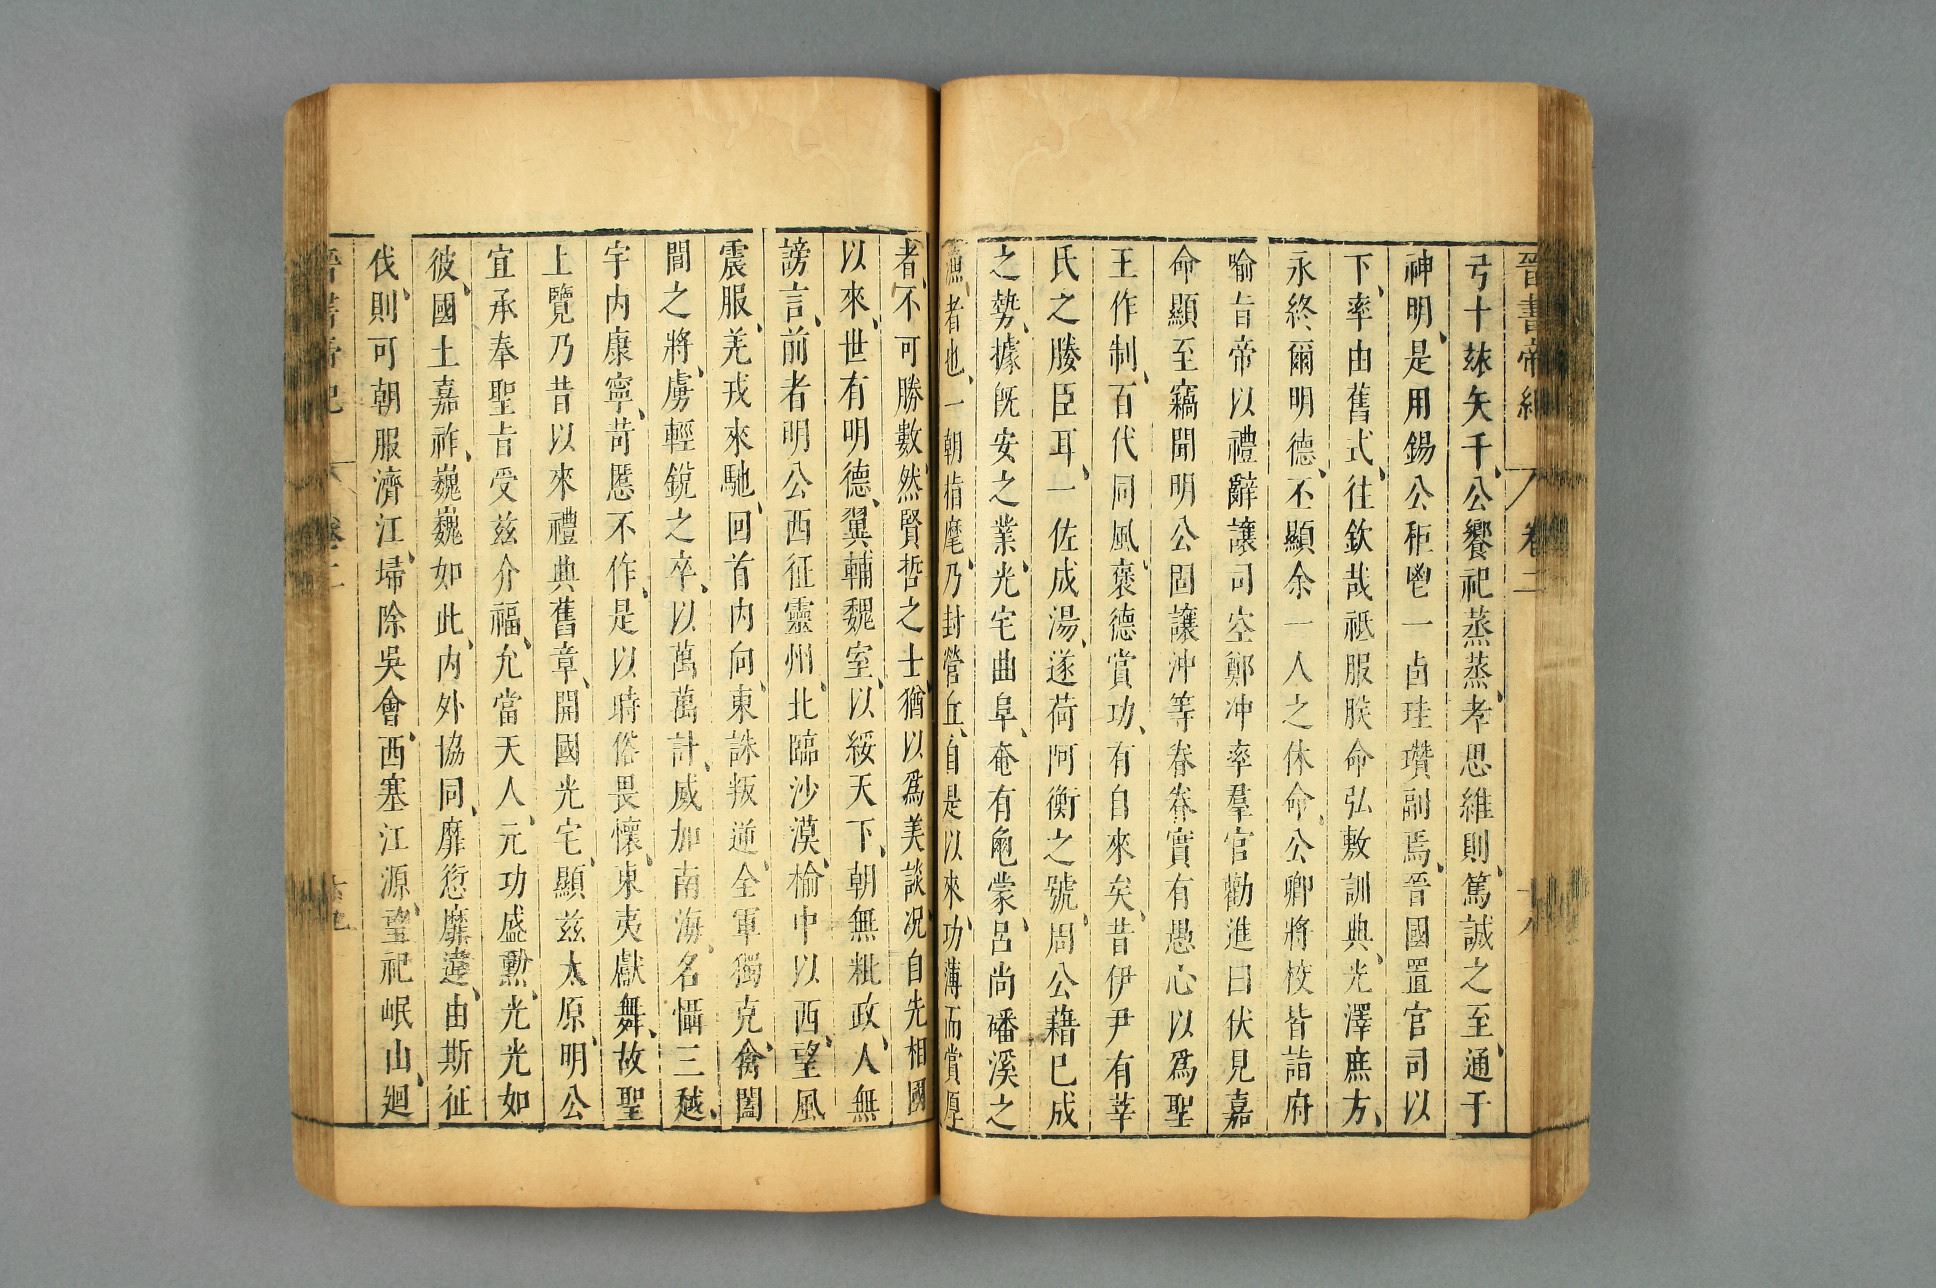 晉書帝紀 卷二 十八
弓十玈矢千、公饗祀蒸蒸、孝思維則、篤誠之至、通于
神明、是用錫公秬鬯一卣珪瓚副焉、晉國置官司以
下、率由舊式、往欽哉祗服朕命弘敷訓典、光澤庶方、
永終爾明德、丕顯余一人之休命、公卿將校皆詣府
喻旨帝以禮辭讓司空鄭沖率羣官勸進曰伏見嘉
命顯至竊聞明公固讓沖等眷眷實有愚心以爲聖
王作制、百代同風、褒德賞功、有自來矣、昔伊尹有莘
氏之媵臣耳、一佐成湯、遂荷阿衡之號、周公藉已成
之勢、據旣安之業、光宅曲阜、奄有龜蒙、呂尚磻溪之
漁者也、一朝指麾、乃封營丘、自是以來、功薄而賞厚
者、不可勝數、然賢哲之士、猶以爲美談、況自先相國
以來、世有明德、翼輔魏室、以綏天下、朝無粃政、人無
謗言、前者明公西征靈州、北臨沙漠、榆中以西、望風
震服、羌戎來馳、回首內向、東誅叛逆、全軍獨克、禽闔
閭之將、虜輕銳之卒、以萬萬計、威加南海、名懾三越、
宇內康寧、苛慝不作、是以時俗畏懷、東夷獻舞、故聖
上覽乃昔以來禮典舊章、開國光宅、顯茲太原、明公
宜承奉聖旨受茲介福、允當天人、元功盛勳、光光如
彼、國土嘉祚、巍巍如此、內外協同、靡愆靡違、由斯征
伐、則可朝服濟江、埽除吳會、西塞江源、望祀岷山、廻